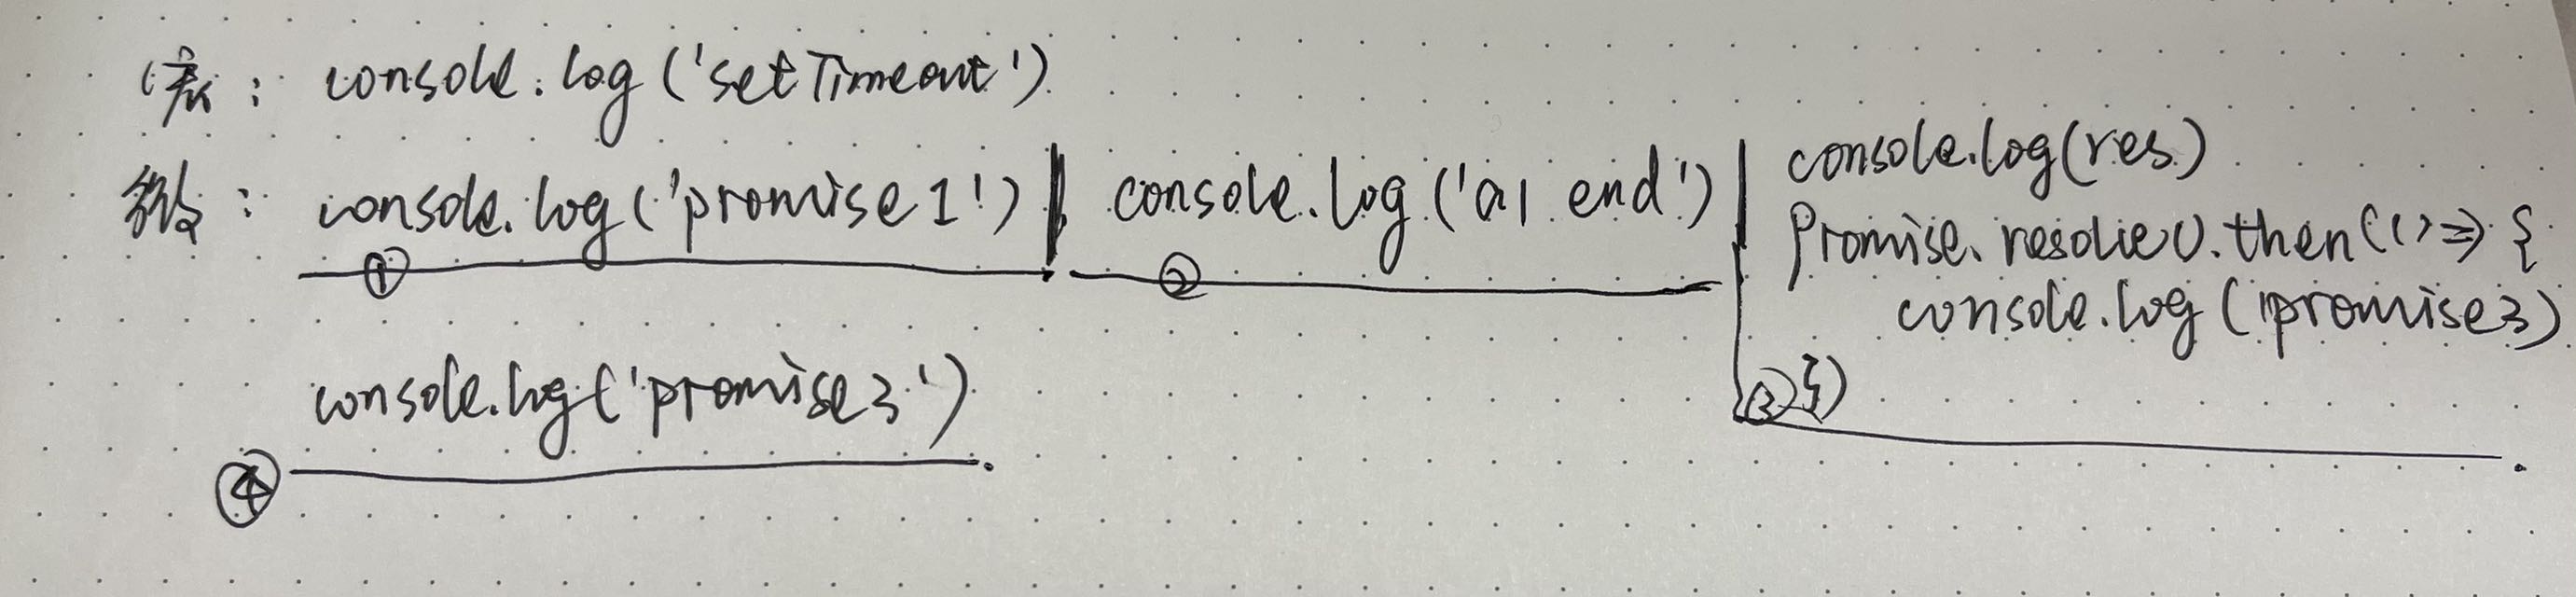 宏: console.log('setTimeout')
微: console.log('promise1') | console.log('a1 end') | console.log(res)
Promise.resolve().then(() => {
console.log('promise3)
③ })
① ②
console.log('promise3')
④